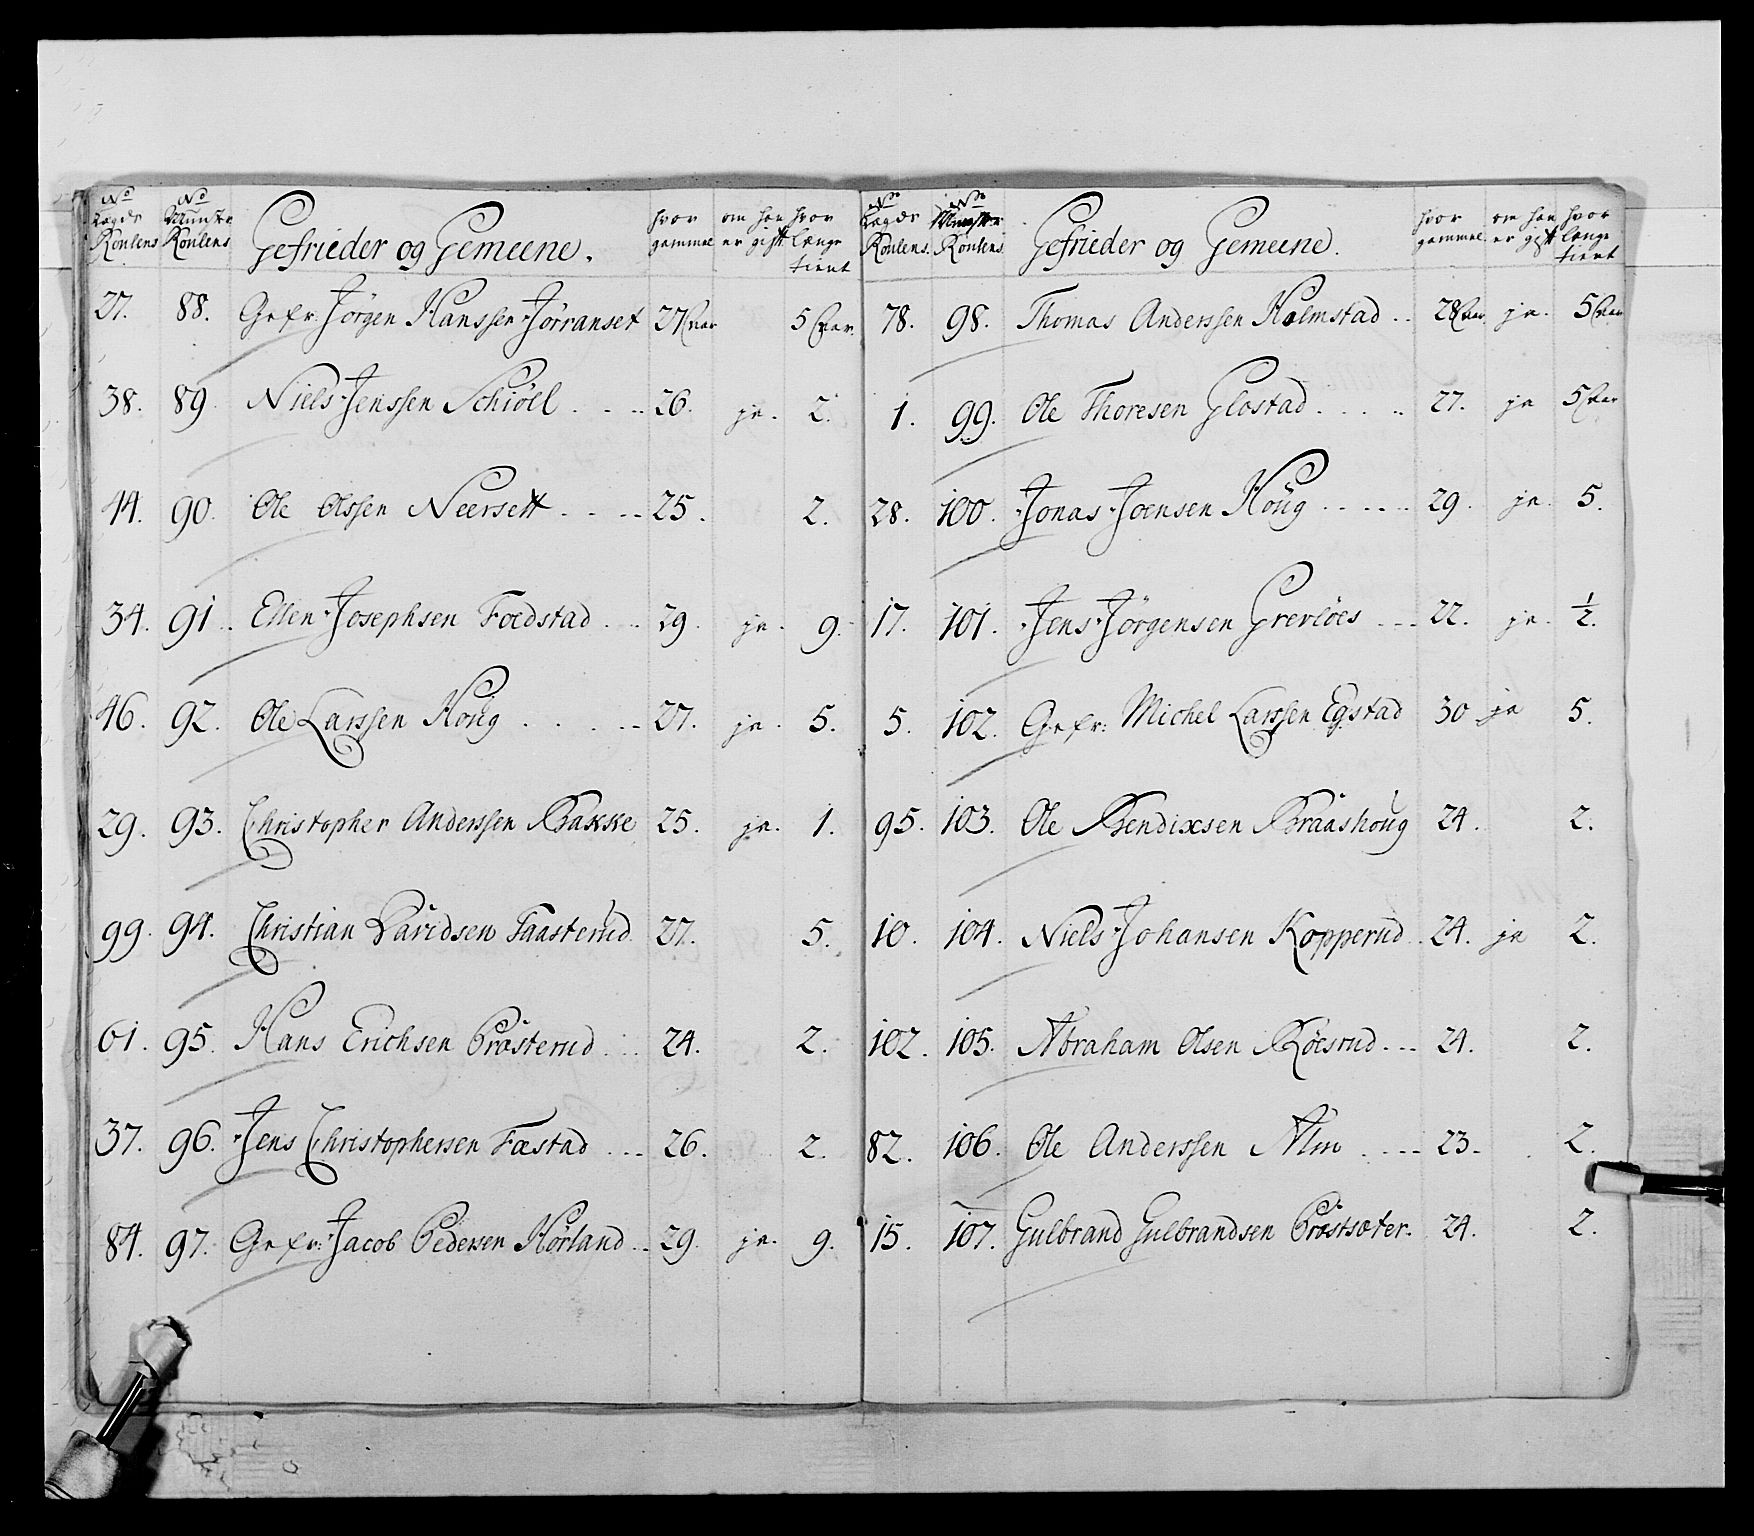 No No
Lægds Munstr hvor om han hvor
Roulens Roulens Gefrieder og Gemeene. gammel er gift længe
tient
27. 88. Gefr: Jørgen Hanssen Jørranset 27 Aar 5 Aar.
38. 89. Niels Jenssen Schiøll . . .. 26. ja. 2.
44. 90. Ole Olssen Neersett . . .. 25. 2.
34. 91. Ellen Josephsen Foedstad . .. 29. ja. 9.
46. 92. Ole Larssen Houg . . . . .. 27. ja. 5.
29. 93. Christopher Anderssen Bakke 25. ja. 1.
99. 94. Christian Davidsen Faasterud 27. 5.
61. 95. Hans Erichsen Prøsterud . . . 24. 2.
37. 96. Jens Christophersen Fæstad . . .. 26. 2.
84. 97. Gefr: Jacob Pedersen Hørland . .. 29. ja. 9.
No No
Lægds Munster hvor om han hvor
Roulens. Roulens Gefrieder og Gemeene. gammel er gift længe
tient
78. 98. Thomas Anderssen Holmstad . . 28 Aar ja. 5 Aar
1. 99. Ole Thoresen Glostad . . . . .. 27. ja 5 Aar
28. 100. Jonas Joensen Houg . . . . . . 29. ja. 5.
17. 101. Jens Jørgensen Grevløes . . . 22. ja. 1/2.
5. 102. Gefr: Michel Larssen Egstad 30 ja 5.
95. 103. Ole Bendixsen Braashoug 24. 2.
10. 104. Niels Johansen Kopperud . 24. ja 2.
102. 105. Abraham Olsen Røesrud . . . 24. 2.
82. 106. Ole Anderssen Alm . . . . 23. 2.
15. 107. Gulbrand Gulbrandsen Prøstsæter. 24. 2.